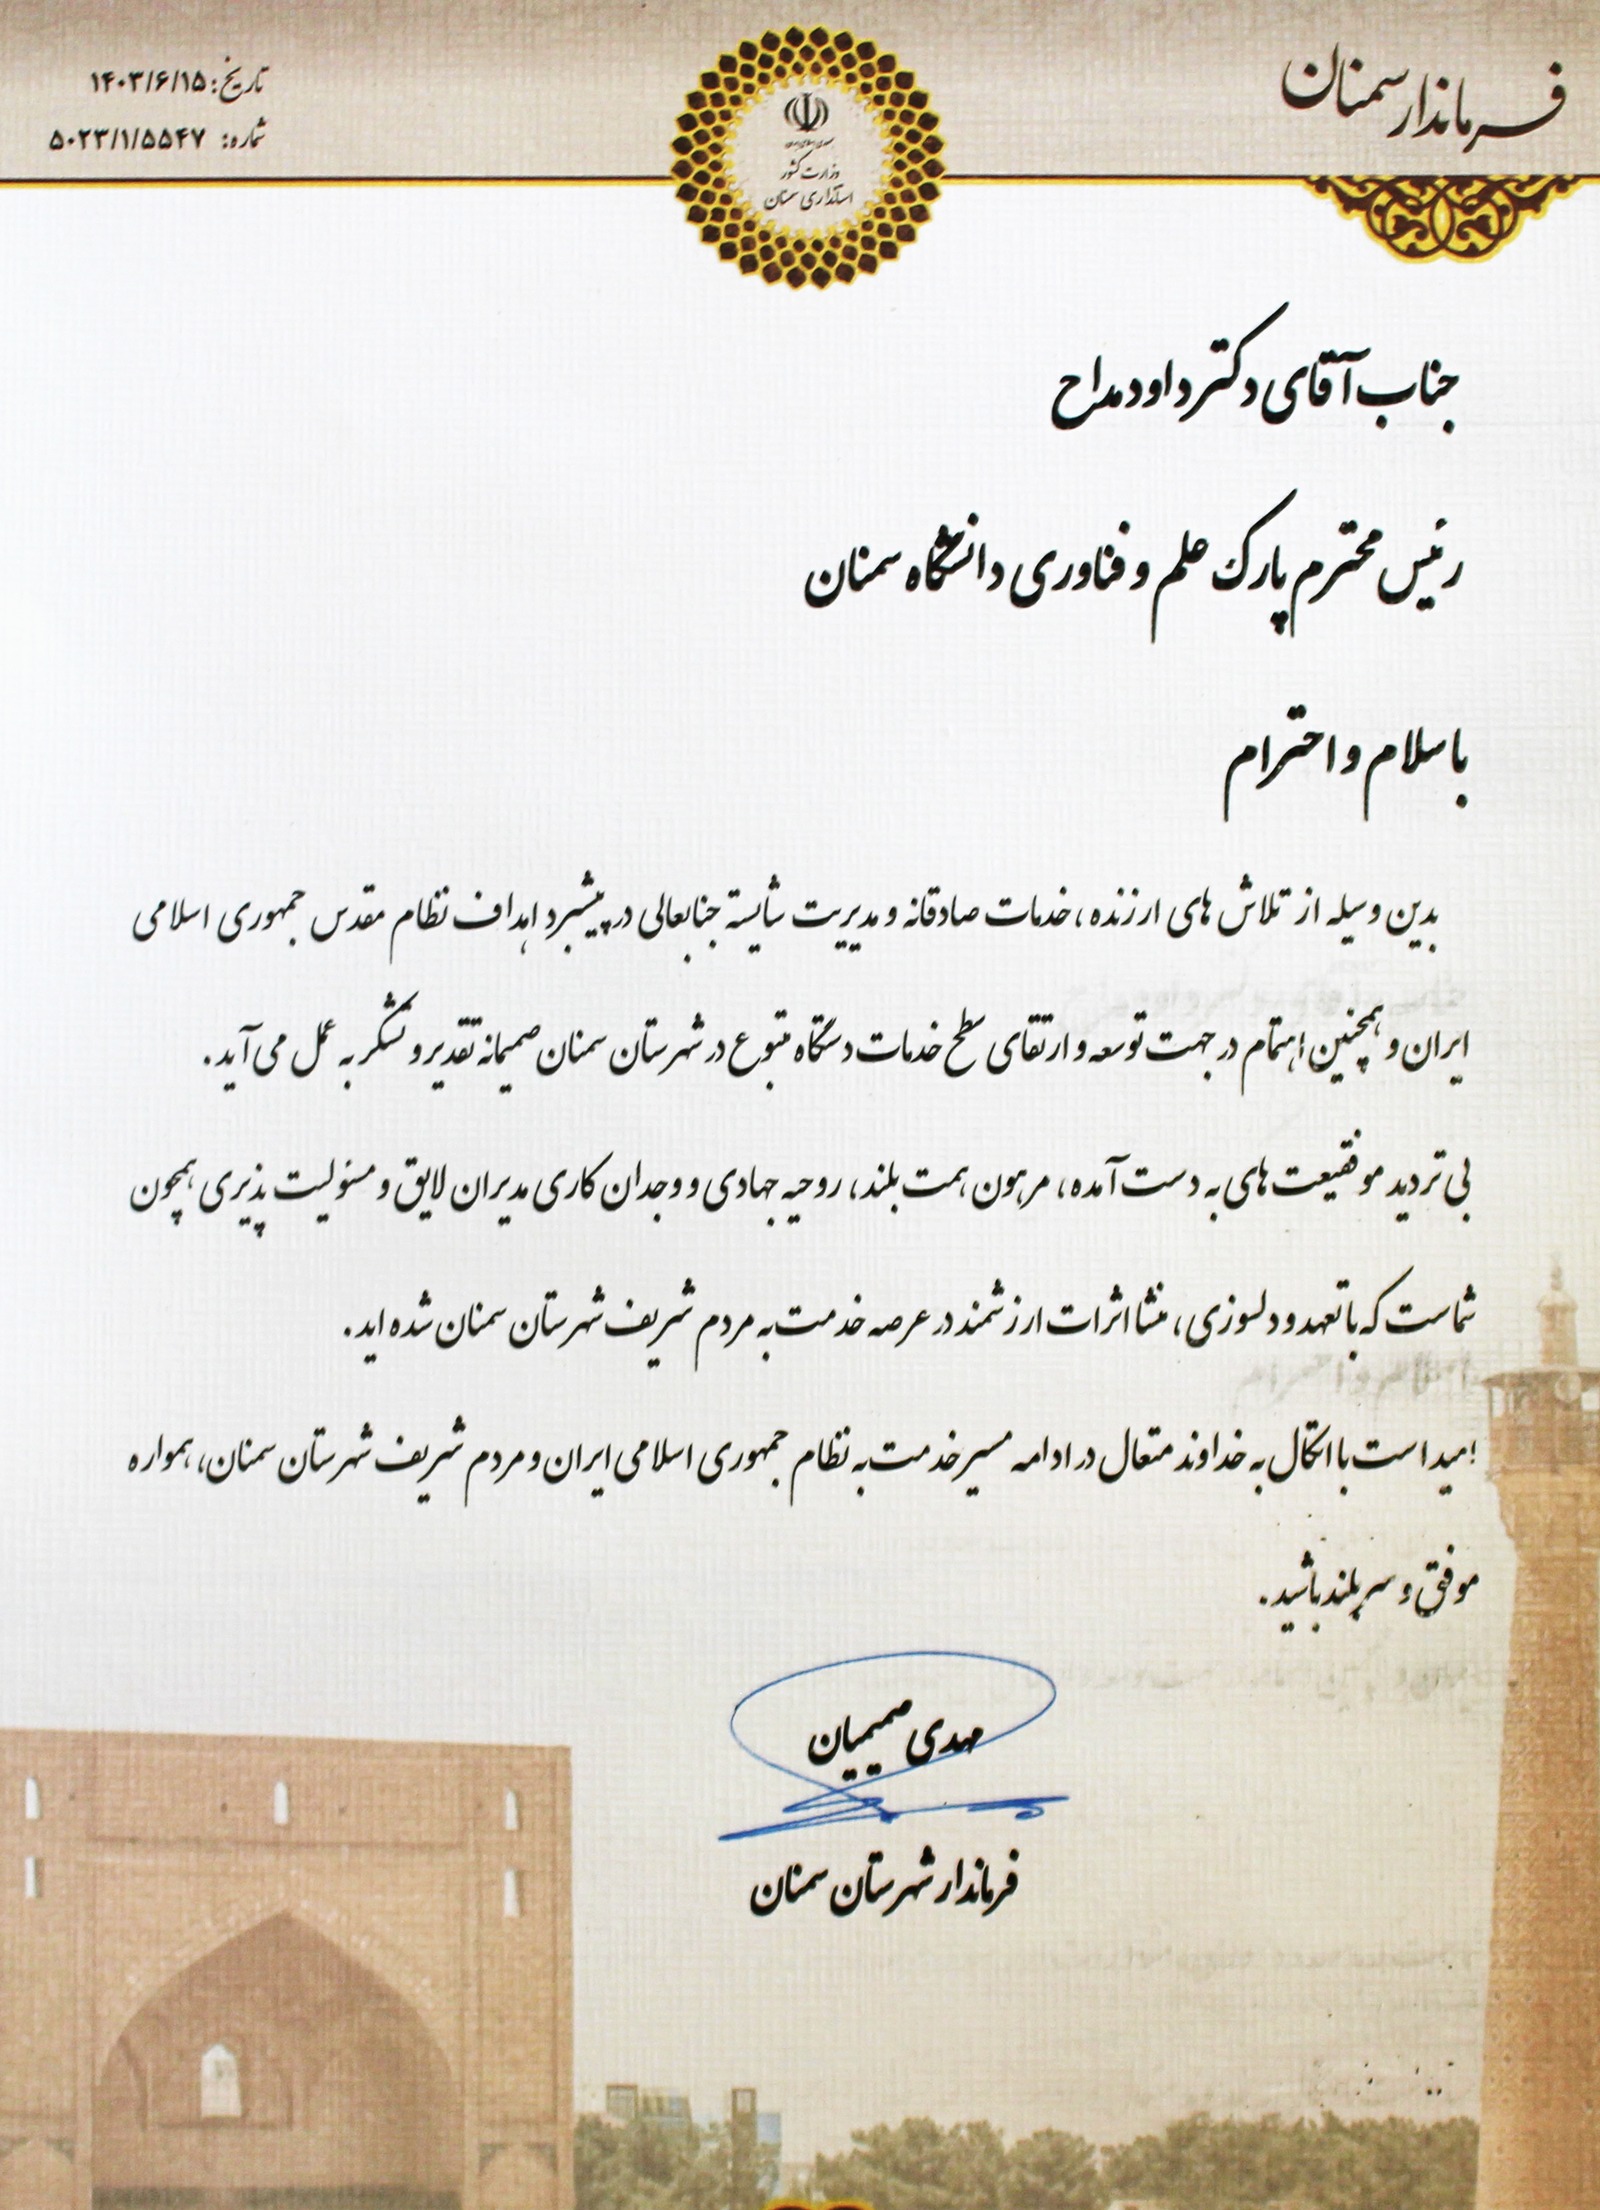 فرماندار سمنان
تاریخ: ۱۴۰۳/۶/۱۵
شماره: ۵۰۲۳/۱/۵۵۴۷
جمهوری اسلامی ایران
وزارت کشور
استانداری سمنان
جناب آقای دکتر داود مداح
رئیس محترم پارک علم و فناوری دانشگاه سمنان
با سلام و احترام
بدین وسیله از تلاش های ارزنده، خدمات صادقانه و مدیریت شایسته جنابعالی در پیشبرد اهداف نظام مقدس جمهوری اسلامی
ایران و همچنین اهتمام در جهت توسعه و ارتقای سطح خدمات دستگاه متبوع در شهرستان سمنان صمیمانه تقدیر و تشکر به عمل می آید.
بی تردید موفقیعت های به دست آمده، مرهون همت بلند، روحیه جهادی و وجدان کاری مدیران لایق و مسئولیت پذیری همچون
شماست که با تعهد و دلسوزی، منشا اثرات ارزشمند در عرصه خدمت به مردم شریف شهرستان سمنان شده اید.
امید است با اتکال به خداوند متعال در ادامه مسیر خدمت به نظام جمهوری اسلامی ایران و مردم شریف شهرستان سمنان، همواره
موفق و سربلند باشید.
مهدی صمیمیان
فرماندار شهرستان سمنان